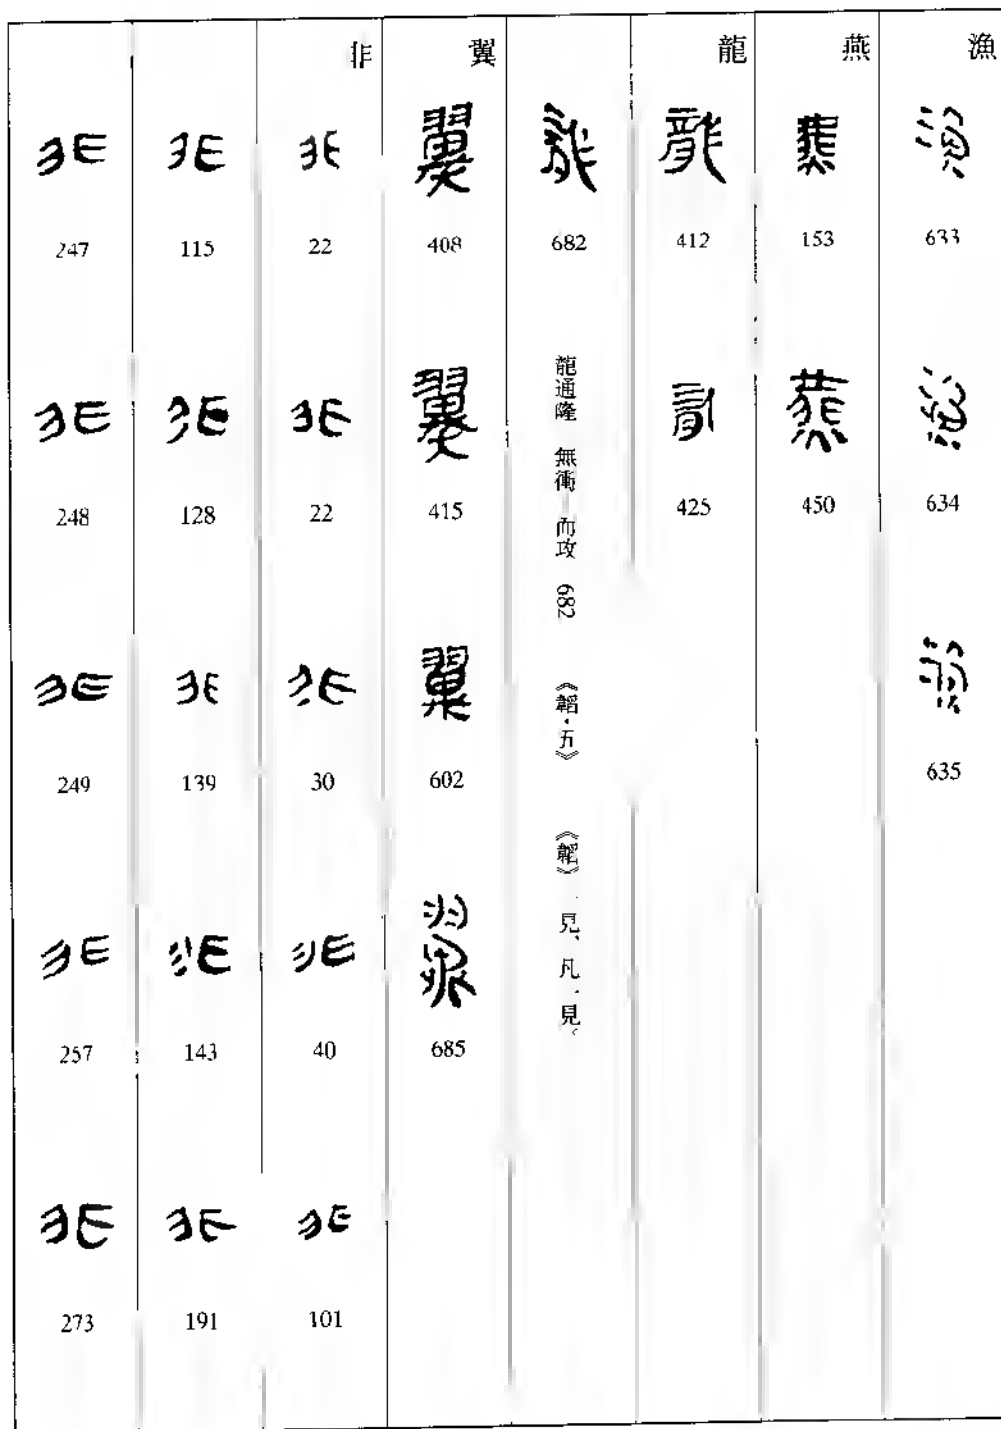 漁
633
634
635
燕
153
450
龍
412
425
682
龍通隆 無衝 而攻 682 《韜·五》 《韜》一見、凡一見。
翼
408
415
602
685
非
22
22
30
40
101
115
128
139
143
191
247
248
249
257
273